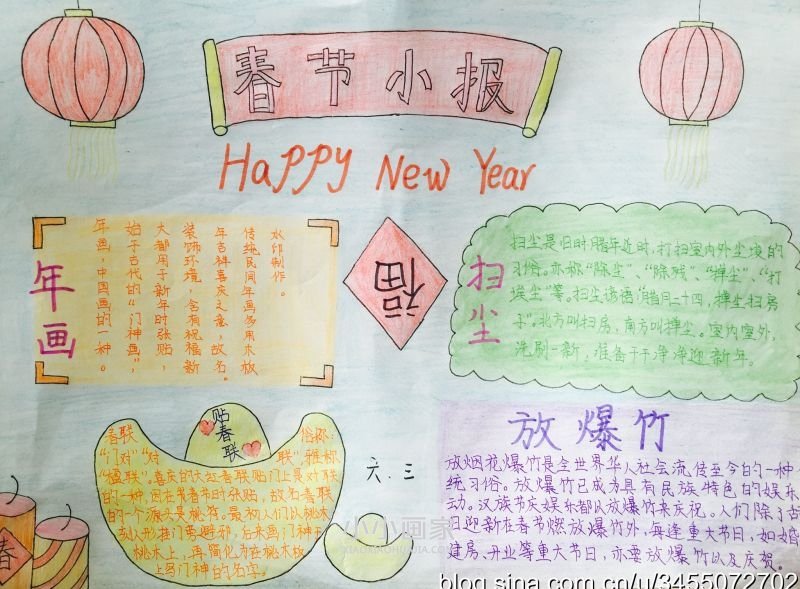 春节小报
Happy New Year
年画
年画，中国画的一种。
始于古代的“门神画”，
大都用于新年时张贴，
装饰环境，含有祝福新
年吉祥喜庆之意，故名。
传统民间年画多用木板
水印制作。
福
扫尘
扫尘是旧时腊年近时，打扫室内外尘埃的
习俗。亦称“除尘”、“除残”、“掸尘”、“打
埃尘”等。扫尘谚语：“腊月二十四，掸尘扫房
子”。北方叫扫房，南方叫掸尘。室内室外，
洗刷一新，准备干干净净迎新年。
贴春联
春联 俗称：
“门对”“对 联”雅称
“楹联”。喜庆的大红春联贴门上是对联
的一种，因在我春节时张贴，故名春联
的一个源头是桃符。最初人们以桃木
刻人形挂门旁避邪，后来画门神于
桃木上，再简化为在桃木板
上写门神的名字。
六.三
放爆竹
放烟花爆竹是全世界华人社会流传至今的一种
统习俗。放爆竹已成为具有民族特色的娱乐
动。汉族节庆娱乐都以放爆竹来庆祝。人们除了古
旧迎新在春节燃放爆竹外，每逢重大节日，如婚
建房、开业等重大节日，亦要放爆竹以及庆贺。
春
小小画家
XIAOXIAOHUAJIA.COM
blog.sina.com.cn/u/3455072702